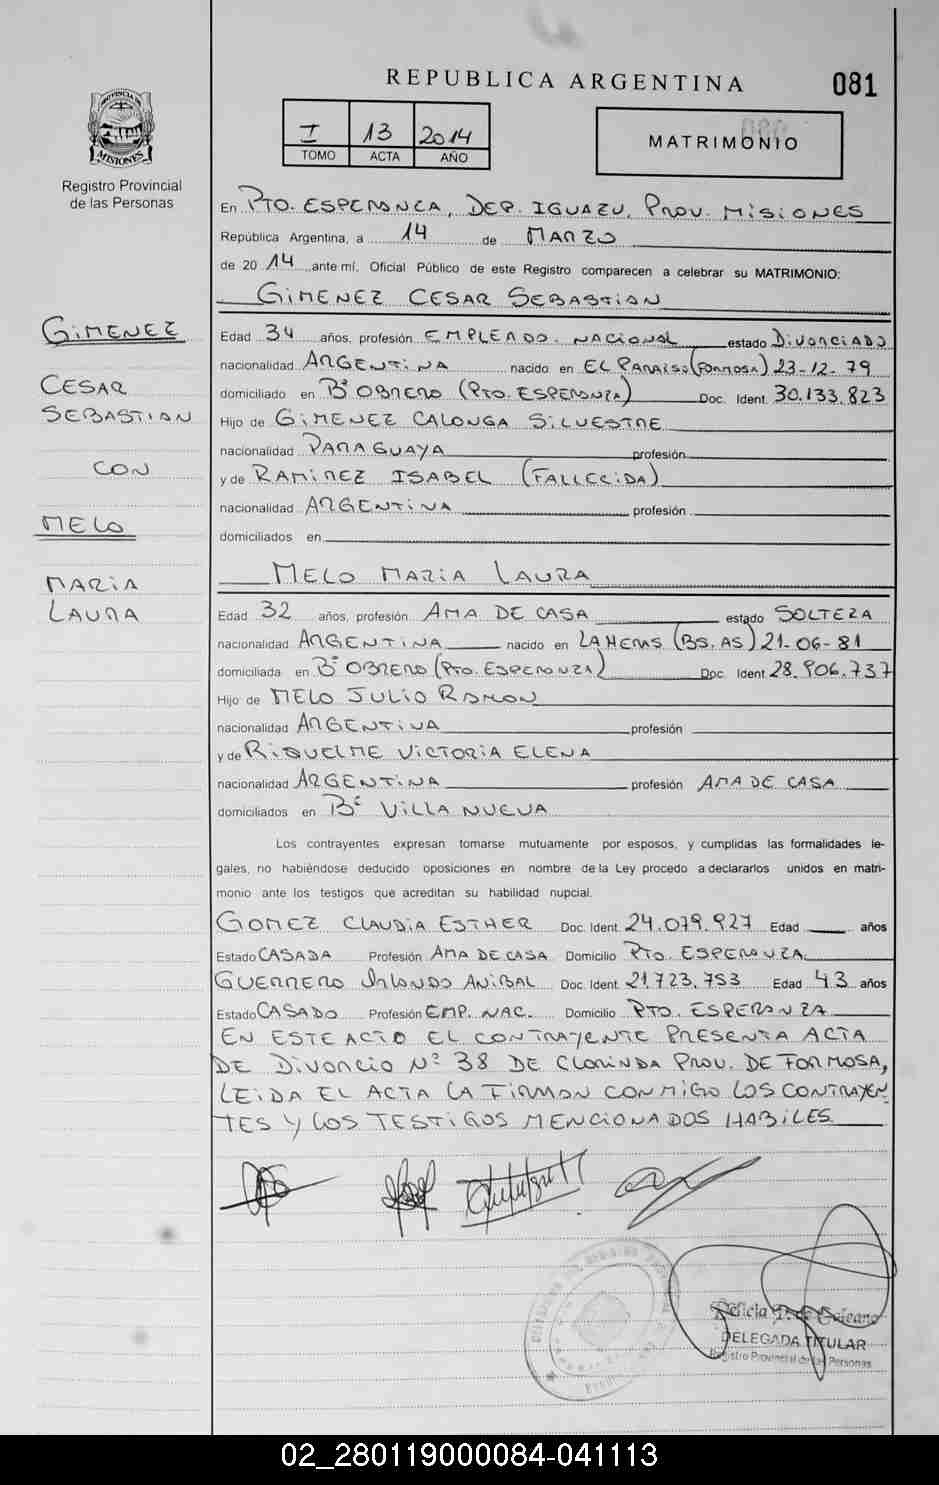 REPUBLICA ARGENTINA
081
PROVINCIA DE MISIONES
Registro Provincial
de las Personas
I 13 2014
TOMO ACTA AÑO
MATRIMONIO
En PTO. ESPERANZA, DEP. IGUAZU, PROV. MISIONES
República Argentina, a 14 de MARZO
de 20 14 ante mí, Oficial Público de este Registro comparecen a celebrar su MATRIMONIO:
GIMENEZ CESAR SEBASTIAN
GIMENEZ
CESAR
SEBASTIAN
CON
MELO
MARIA
LAURA
Edad 34 años, profesión EMPLEADO NACIONAL estado DIVORCIADO
nacionalidad ARGENTINA nacido en EL PARAISO (FORMOSA) 23-12-79
domiciliado en Bº OBRERO (PTO. ESPERANZA) Doc. Ident. 30.133.823
Hijo de GIMENEZ CALONGA SILVESTRE
nacionalidad PARAGUAYA profesión
y de RAMIREZ ISABEL (FALLECIDA)
nacionalidad ARGENTINA profesión
domiciliados en
MELO MARIA LAURA
Edad 32 años, profesión AMA DE CASA estado SOLTERA
nacionalidad ARGENTINA nacido en LAHERAS (BS. AS) 21-06-81
domiciliada en Bº OBRERO (PTO. ESPERANZA) Doc. Ident 28.906.737
Hijo de MELO JULIO RAMON
nacionalidad ARGENTINA profesión
y de RIQUELME VICTORIA ELENA
nacionalidad ARGENTINA profesión AMA DE CASA
domiciliados en Bº VILLA NUEVA
Los contrayentes expresan tomarse mutuamente por esposos, y cumplidas las formalidades le-
gales, no habiéndose deducido oposiciones en nombre de la Ley procedo a declararlos unidos en matri-
monio ante los testigos que acreditan su habilidad nupcial.
GOMEZ CLAUDIA ESTHER Doc. Ident. 24.079.927 Edad años
Estado CASADA Profesión AMA DE CASA Domicilio PTO. ESPERANZA
GUERRERO ORLANDO ANIBAL Doc. Ident 21.723.753 Edad 43 años
Estado CASADO Profesión EMP. NAC. Domicilio PTO. ESPERANZA
EN ESTE ACTO EL CONTRAYENTE PRESENTA ACTA
DE DIVORCIO Nº 38 DE CLORINDA PROV. DE FORMOSA,
LEIDA EL ACTA LA FIRMAN CONMIGO LOS CONTRAYEN-
TES Y LOS TESTIGOS MENCIONADOS HABILES.
DELEGADA TITULAR
Registro Provincial de las Personas
02_280119000084-041113